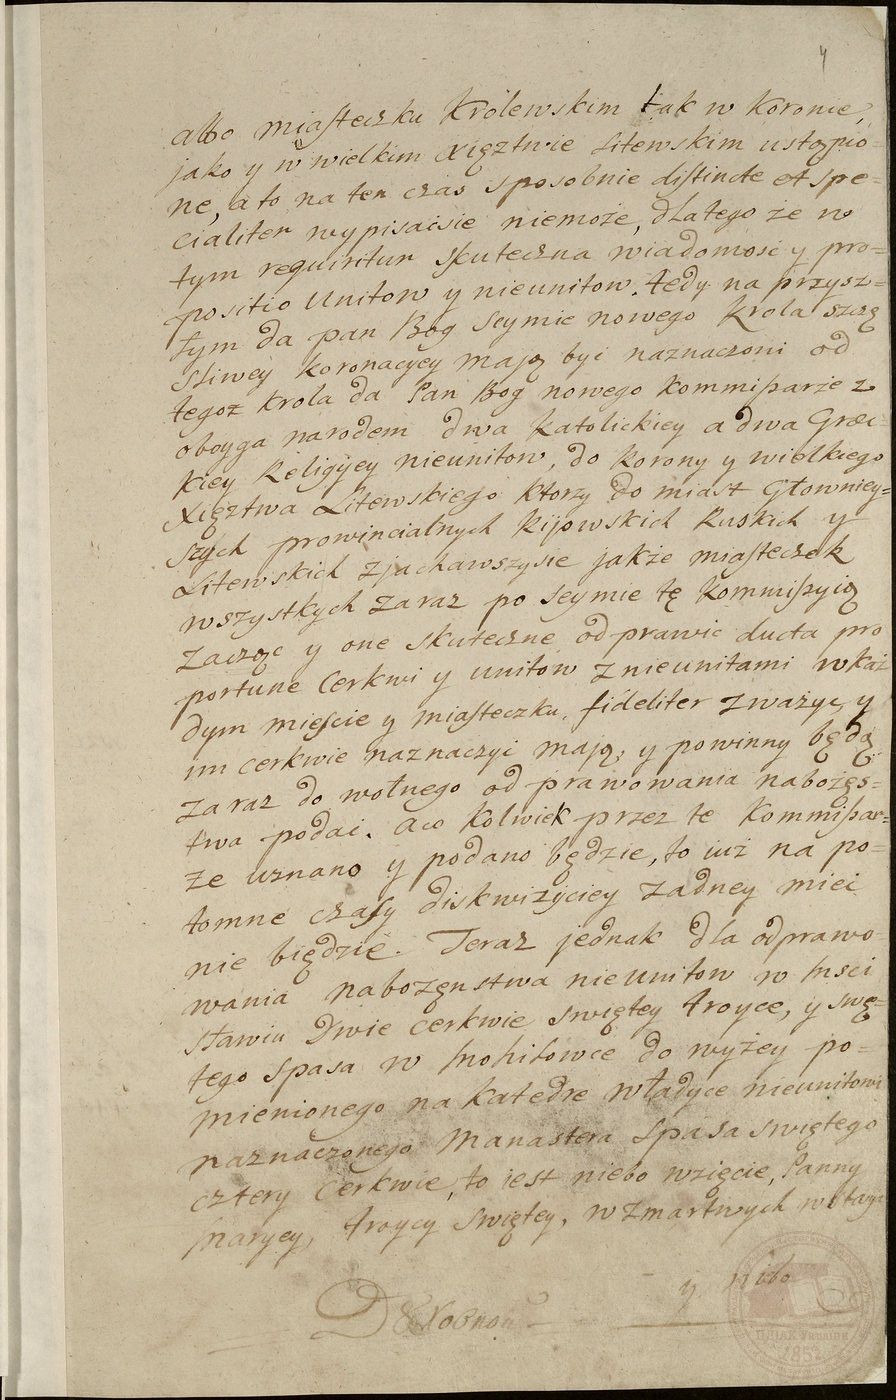 4
albo miasteczku Królewskim tak w Koronie,
jako y w wielkim Xięztwie Litewskim ustąpio=
ne, a to na ten czas sposobnie distincte et spe=
cialiter wypisaćsie niemoże, dlatego że w
tym requiritur skuteczna wiadomość y pro=
positio Unitow y nieunitow. tedy na przysz=
łym da pan Bog Seymie nowego Krola szczę
sliwey Koronacyey mają być naznaczoni od
tegoz Krola da Pan Bog nowego Kommissarze z
oboyga narodem dwa Katolickiey a dwa Græc=
kiey Religiyey nieunitow, do Korony y wielkiego
Xięztwa Litewskiego Ktorzy do miast Głowniey=
szych prowincialnych Kijowskich Ruskich y
Litewskich zjachawszysie jakże miasteczek
wszystkych zaraz po Seymie tę Kommissyią
zacząc y one skuteczne odprawić ducta pro
portune Cerkwi y unitow znieunitami wkaż
dym mieście y miasteczku, fideliter zważyc y
im cerkwie naznaczyć mają, y powinny będą
zaraz do wołnego odprawowania nabożęs=
twa podać. aco Kolwiek przez te Kommissar=
ze uznano y podano będzie, to iuż na po=
tomne czasy diskwizyciey zadney mieć
nie będzie. Teraz jednak dla odprawo=
wania nabozęnstwa nieunitow w Msci
sławiu Dwie cerkwie swiętey troyce, y swę=
tego Spasa w Mohilowce do wyżey po=
mienionego na Katedre Władyce nieunitowi
naznaczonego Manastera Spasa swiętego
cztery Cerkwie, to iest niebo wzięcie, Panny
Maryey, troycy swiętey, wzmartwych wstayc
y nibo
ЦДІАК України
1852